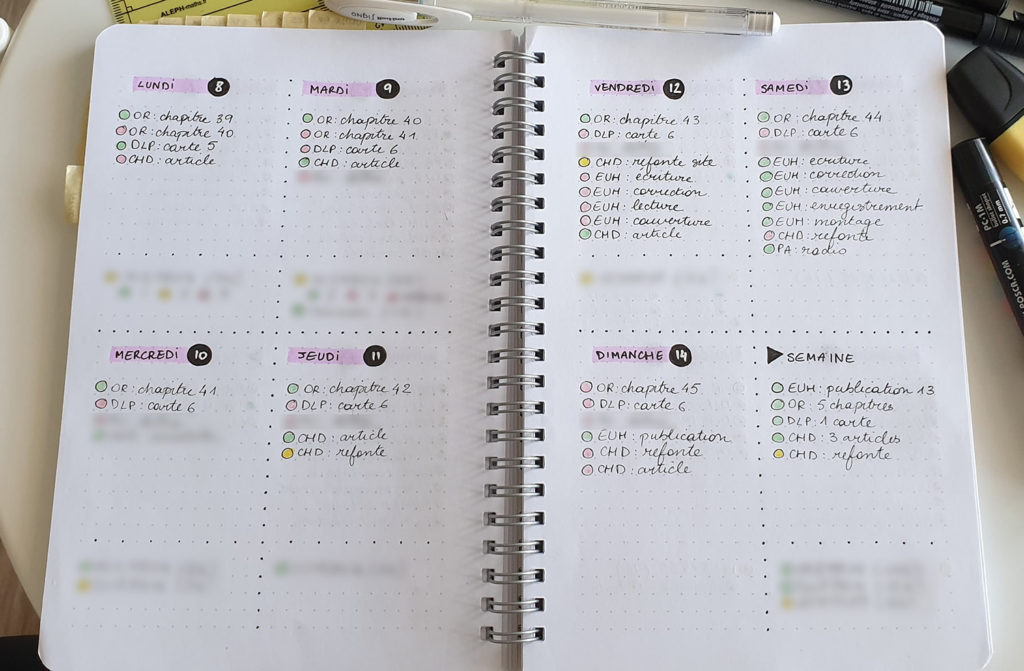 ALEPH-maths
LUNDI 8
OR: chapitre 39
OR: chapitre 40
DLP: carte 5
CHD: article
MARDI 9
OR: chapitre 40
OR: chapitre 41
DLP: carte 6
CHD: article
MERCREDI 10
OR: chapitre 41
DLP: carte 6
JEUDI 11
OR: chapitre 42
DLP: carte 6
CHD: article
CHD: refonte
VENDREDI 12
OR: chapitre 43
DLP: carte 6
CHD: refonte site
EUH: écriture
EUH: correction
EUH: lecture
EUH: couverture
CHD: article
SAMEDI 13
OR: chapitre 44
DLP: carte 6
EUH: écriture
EUH: correction
EUH: couverture
EUH: enregistrement
EUH: montage
CHD: refonte
PA: radio
DIMANCHE 14
OR: chapitre 45
DLP: carte 6
EUH: publication
CHD: refonte
CHD: article
SEMAINE
EUH: publication 13
OR: 5 chapitres
DLP: 1 carte
CHD: 3 articles
CHD: refonte
PC-1M
0.7 mm